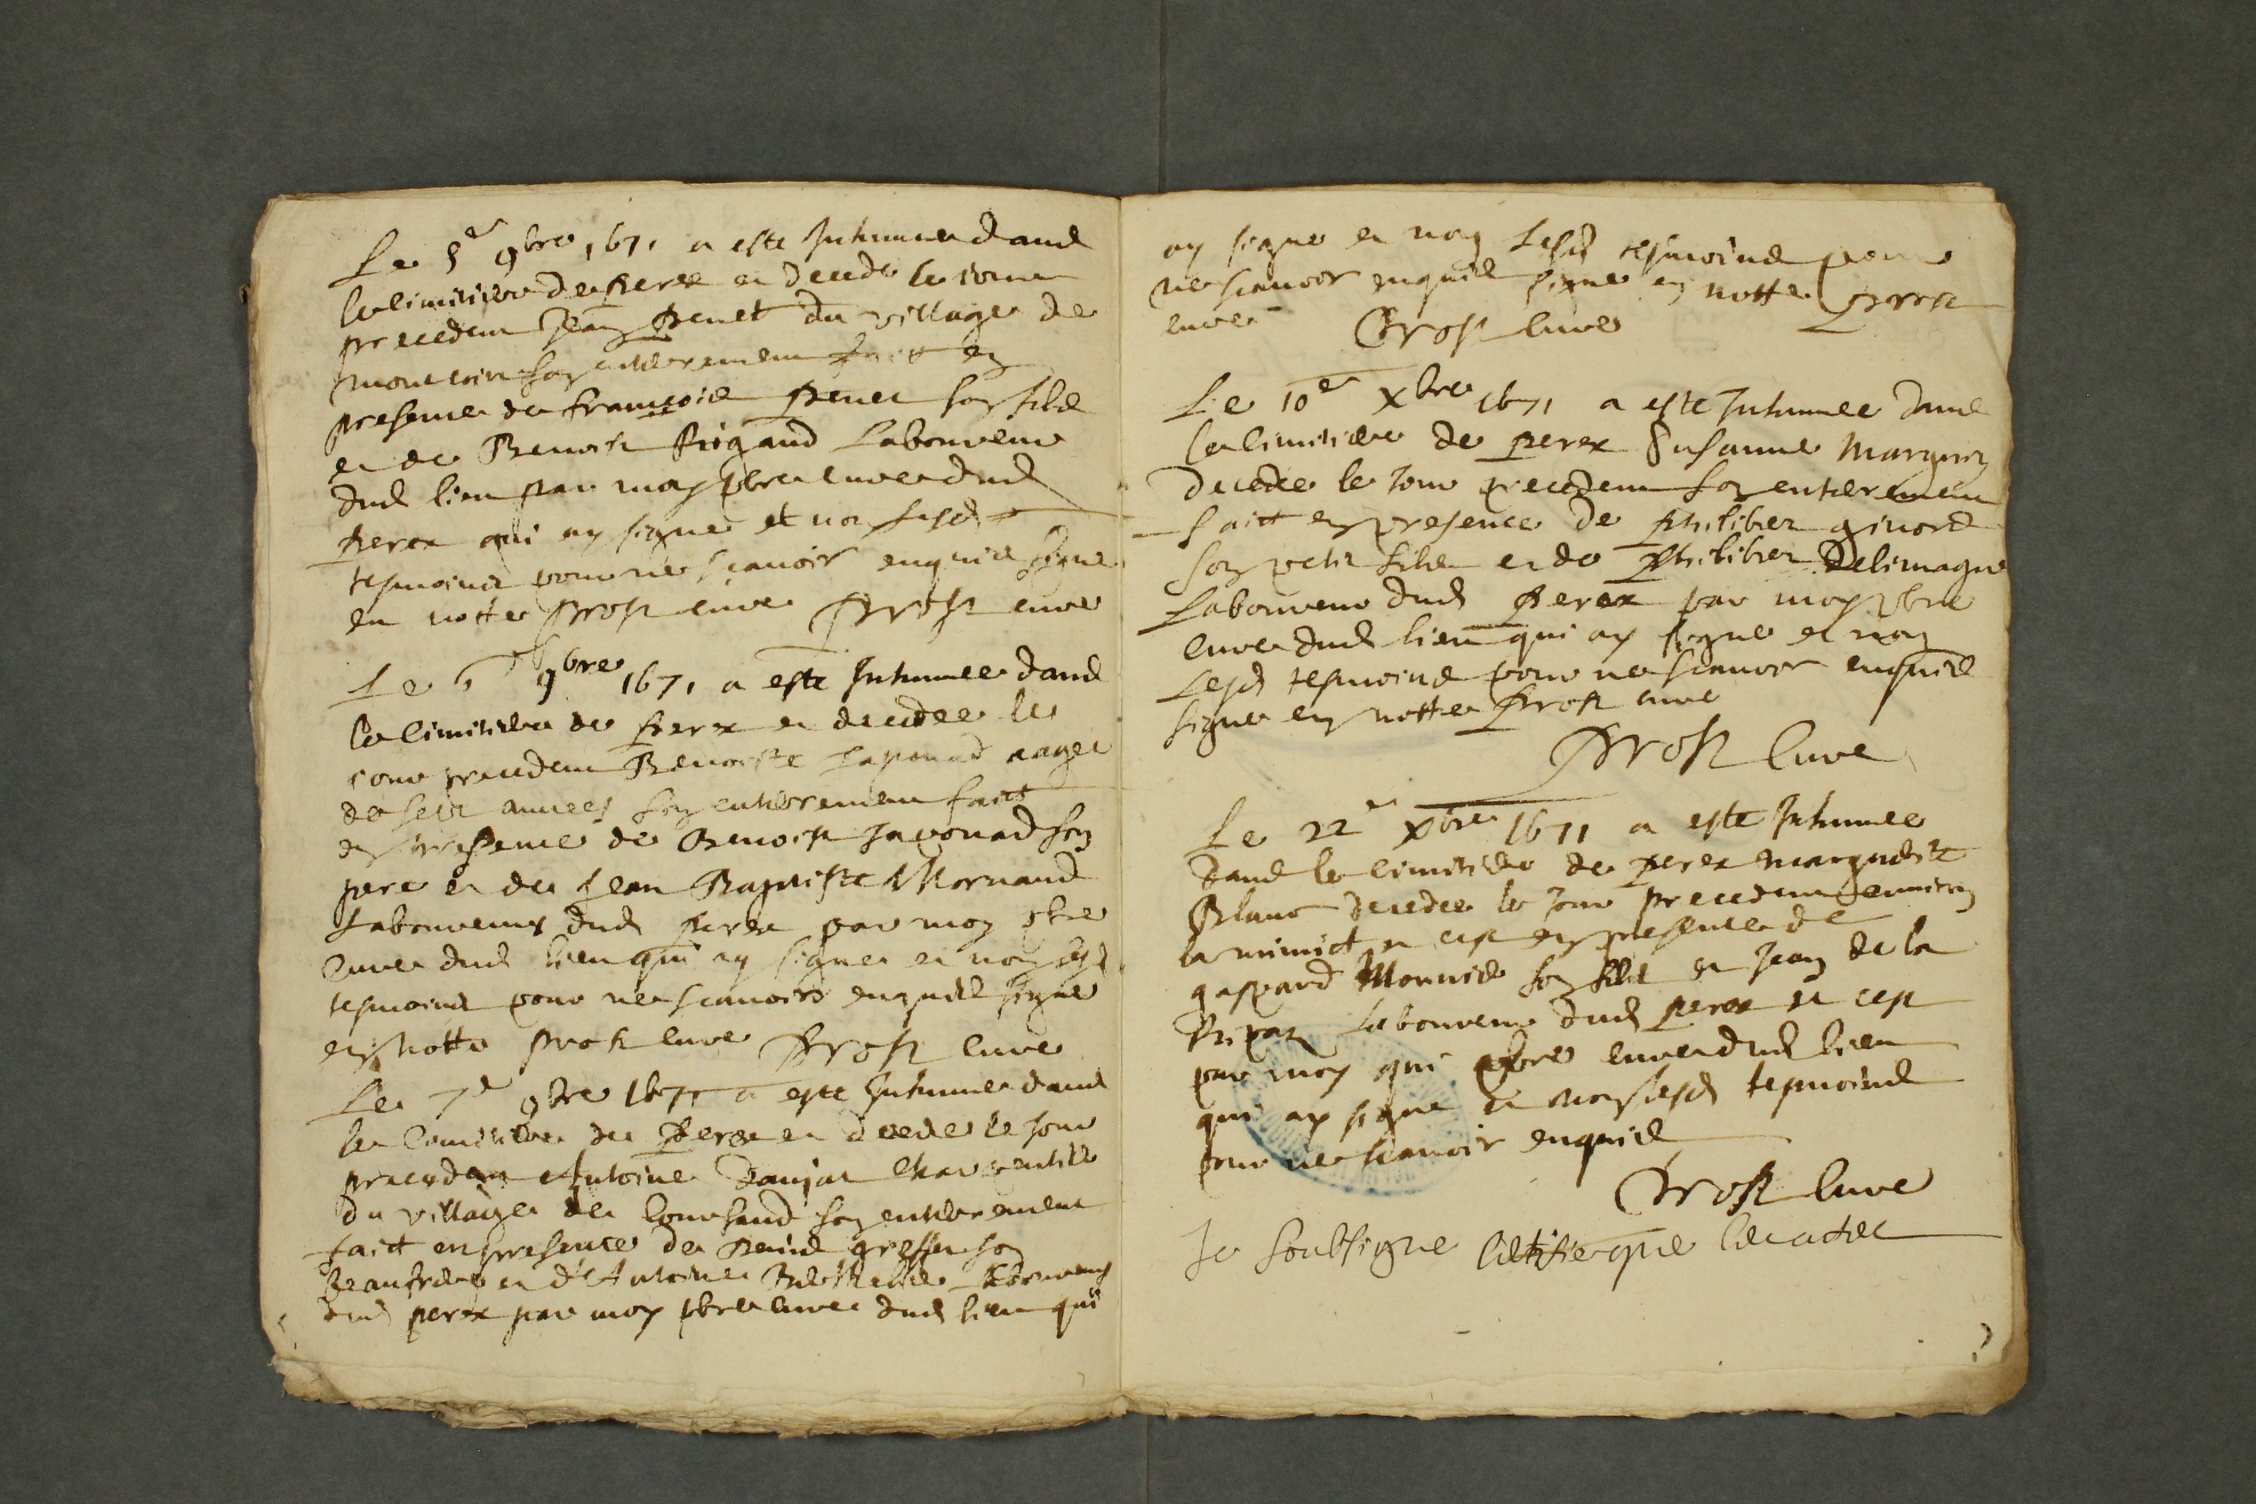 Le 5e 9bre 1671 a este Inhume dans
le cimitiere de perex et decede le iour
precedent Jean Benet du village de
son enterrement faict en
presence de francois Benet son fils
et de Benoist Rigaud laboureur
dud lieu par moy pbre cure dud
perex qui ay signe et non lesd
tesmoins pour ne scavoir enquis signe
en notte prost cure Prost cure
Le 9bre 1671 a este Inhumee dans
le cimitiere de perex et decedee le
iour precedent Benoiste aagee
de sept annees son enterrement faict
en presence de Benoist son
pere et de Jean Baptiste Mornand
laboureurs dud perex par moy pbre
cure dud lieu qui ay signe et non lesd
tesmoins pour ne scavoir enquis signe
en notte prost cure Prost cure
Le 7e 9bre 1671 a este Inhume dans
le Cimitiere de Perex et decede le jour
precedent Antoine Danjat
du village de son enterrement
faict en presence de son
beaufrere et d'Antoine laboureurs
dud perex par moy pbre cure dud lieu qui
ay signe et non lesd tesmoins pour
ne scavoir enquis signe en notte prost
cure Prost cure
Le 10e Xbre 1671 a este Inhumee dans
le cimitiere de perex Susanne
decedee le Jour precedent son enterrement
faict en presence de philibert
son petit fils et de Philibert Delimagne
laboureur dud perex par moy pbre
cure dud lieu qui ay signe et non
lesd tesmoins pour ne scavoir enquis
signe en notte prost cure
Prost Cure
Le 22e Xbre 1671 a este Inhumee
dans le cimitiere de perex margueritte
Blanc decedee le Jour precedent environ
la minuict et ce en presence de
gaspard son fils et Jean de la
laboureur dud perex et ce
par moy qui pbre cure dud lieu
qui ay signe et non lesd tesmoins
pour ne scavoir enquis
Prost Cure
Je soubsigne certifie que les actes